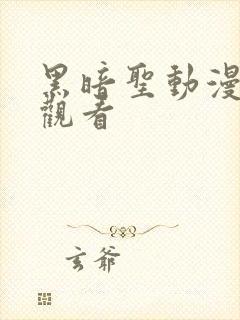 黑暗聖動漫
觀看
玄爺